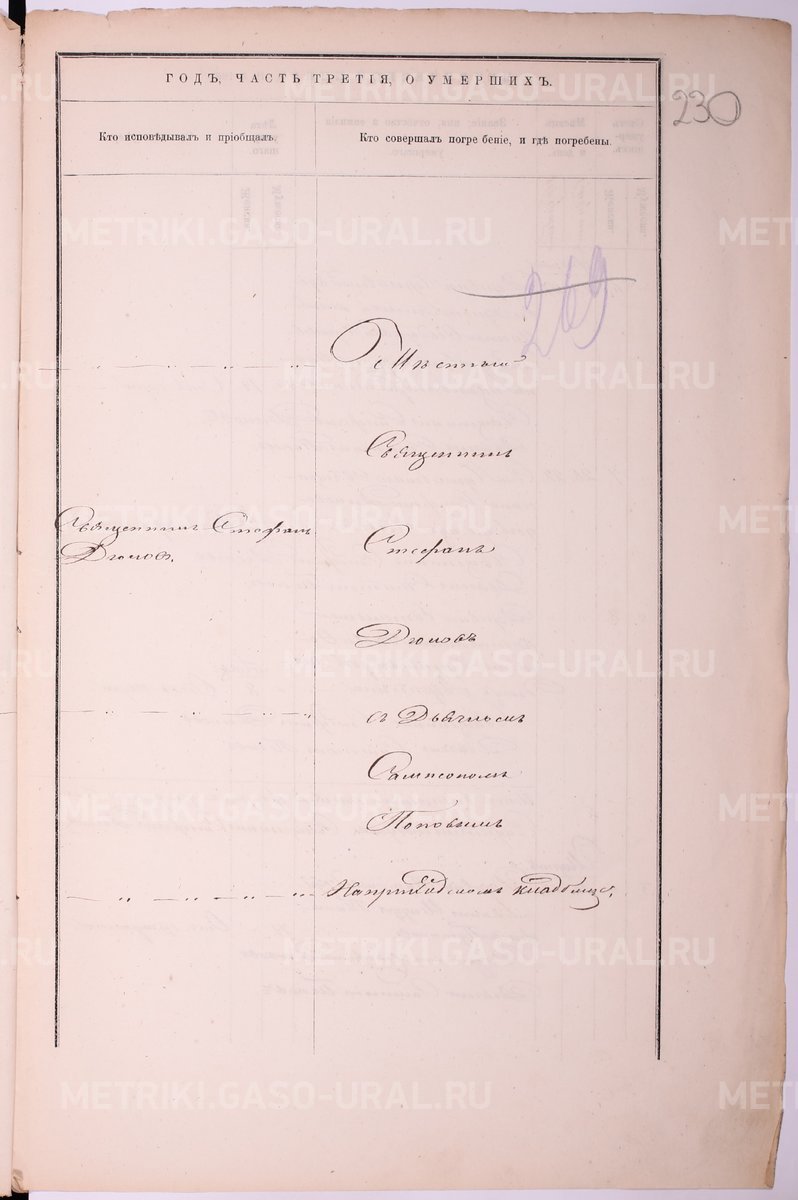 ГОДЪ, ЧАСТЬ ТРЕТІЯ, О УМЕРШИХЪ.
230
Кто исповѣдывалъ и пріобщалъ.
Кто совершалъ погребеніе, и гдѣ погребены.
269
Мѣстный
Священникъ
Священникъ Стефанъ
Стефанъ
Дюковъ
съ Дьячкомъ
Сампсономъ
Поповымъ
На приходскомъ кладбищѣ.
METRIKI.GASO-URAL.RU